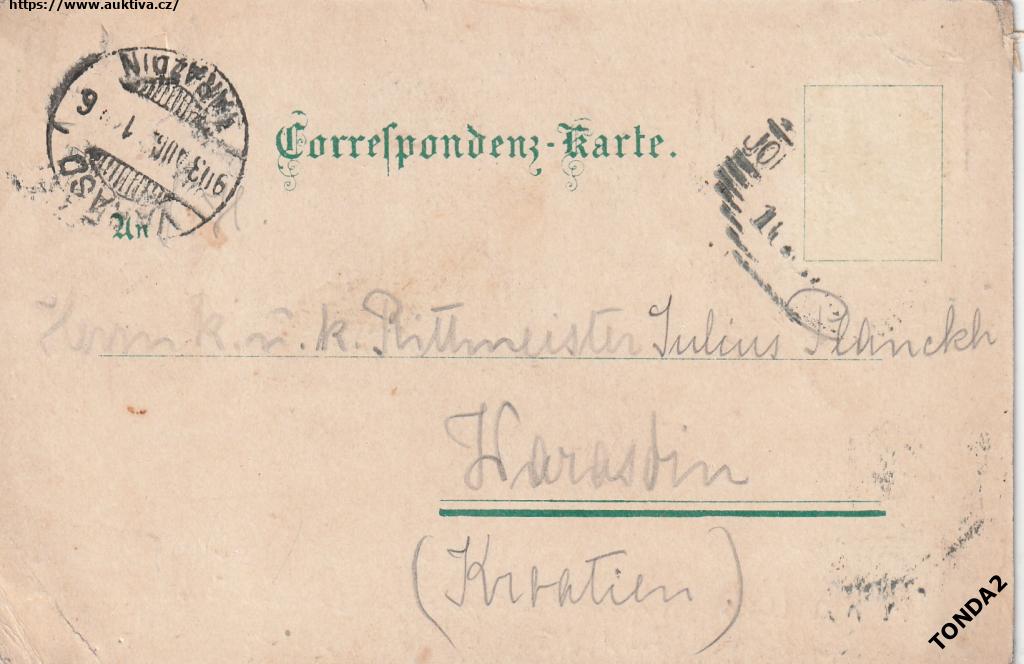 https://www.auktiva.cz/
VARASD
VARAZDIN
903 AUG. 1
6
Correspondenz-Karte.
An
Herrn k. u. k. Rittmeister Julius Planckh
Warasdin
(Kroatien)
TONDA2